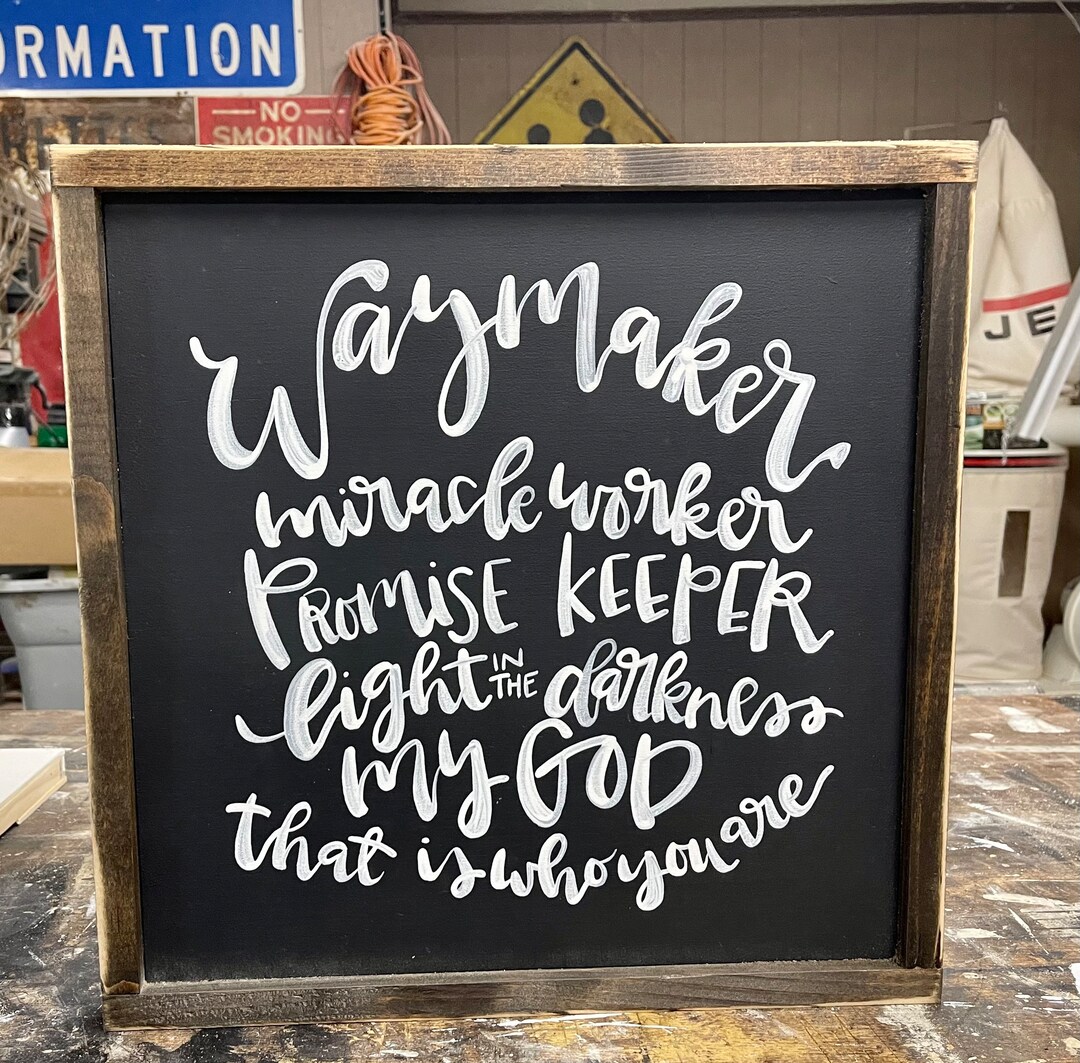 ORMATION
NO
SMOKING
JE
Waymaker
miracle worker
PROMiSE KEEPER
light IN THE darkness
my GOD
that is who you are